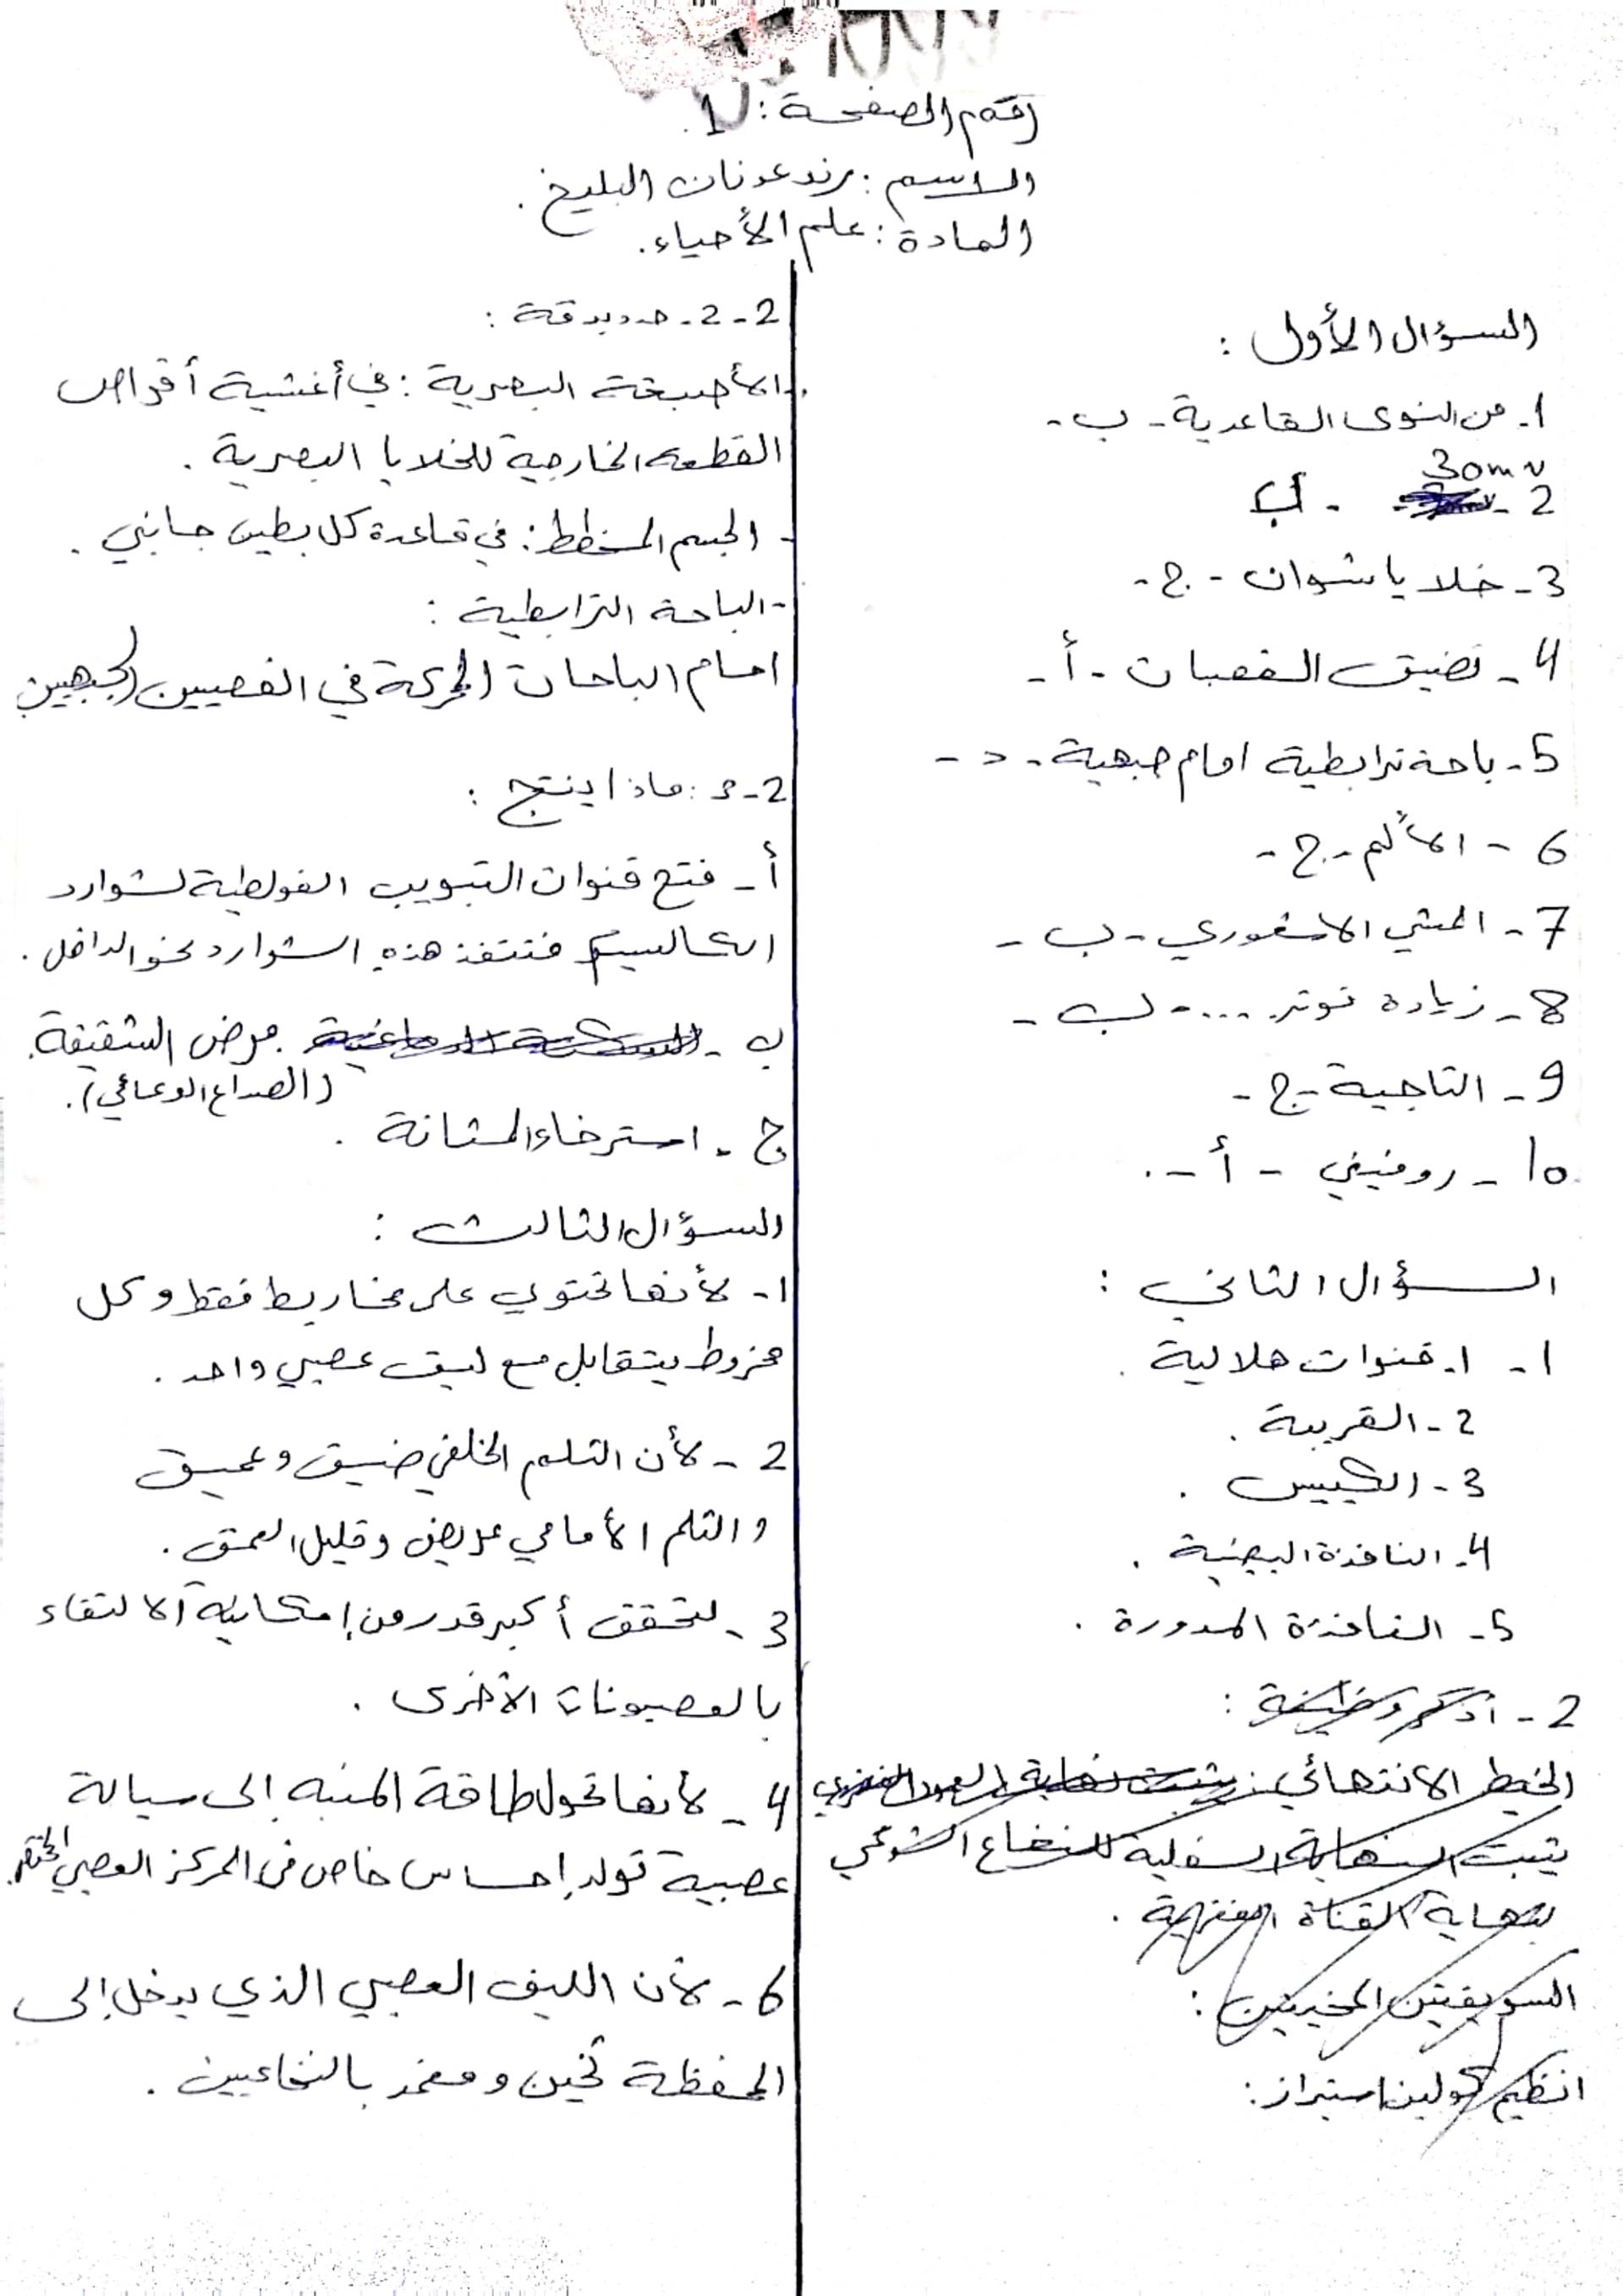 رقم الصفحة : 1.
الاسم : رند عدنان البليخ .
المادة : علم الأحياء .
السؤال الأول :
1- من النوى القاعدية - ب -
30mv
2 - - ب
3 - خلايا شوان - ج -
4 - تضيق القصبات - أ -
5 - باحة ترابطية امام جبهية - د -
6 - الألم - ج -
7 - المشي اللاشعوري - ب -
8 - زيادة توتر .... - ب -
9 - التاجية - ج -
10 - روفيني - أ - .
السؤال الثاني :
1 - 1. قنوات هلالية .
2 - القريبة .
3 - الكييس .
4 - النافذة البيضية .
5 - النافذة المدورة .
2 - أذكر وظيفة :
الخيط الانتهائي : يثبت نهاية العمود الفقري
يثبت النهاية السفلية للنخاع الشوكي
بنهاية القناة الفقرية .
السويقتين المخيتين :
انظيم كولين استراز :
2 - 2 - حدد بدقة :
- الأصبغة البصرية : في أغشية أقراص
القطعة الخارجية للخلايا البصرية .
- الجسم المخطط : في قاعدة كل بطين جانبي .
- الباحة الترابطية :
امام الباحات المحركة في الفصيين الجبهيين
2 - 3 : ماذا ينتج :
أ - فتح قنوات التبويب الفولطية لشوارد
الكالسيوم فتنفذ هذه الشوارد نحو الداخل .
ب - السكتة الدماغية . مرض الشقيقة .
(الصداع الوعائي) .
ج - استرخاء المثانة .
السؤال الثالث :
1 - لأنها تحتوي على مخاريط فقط وكل
مخروط يتقابل مع ليف عصبي واحد .
2 - لأن الثلم الخلفي ضيق وعميق
والثلم الأمامي عريض وقليل العمق .
3 - لتحقق أكبر قدر من إمكانية الالتقاء
بالعصبونات الأخرى .
4 - لأنها تحول طاقة المنبه إلى سيالة
عصبية تولد إحساس خاص في المركز العصبي المختص .
6 - لأن الليف العصبي الذي يدخل إلى
المحفظة ثخين ومغمد بالنخاعين .